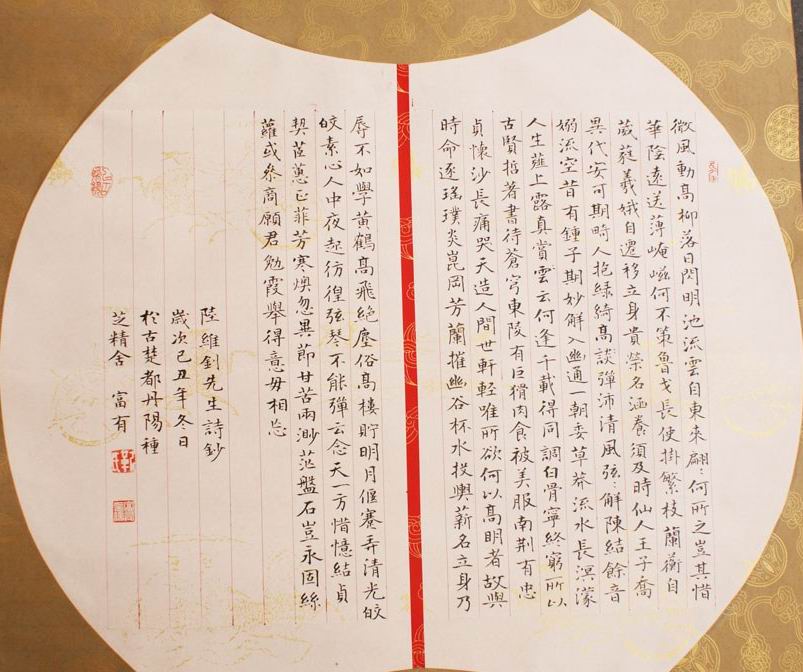 微風動高柳落日閃明池流雲自東來翩〻何所之豈其惜
華陰遠送薄崦嵫何不策魯戈長使掛繁枝蘭蘅自
葳蕤羲娥自遷移立身貴榮名涵養須及時仙人王子喬
異代安可期時人抱綠綺高談彈沛清風弦〻解陳結餘音
嫋流空昔有鍾子期妙解入幽通一朝委草莽流水長溟濛
人生薤上露真賞雲云何逢千載得同調白骨寧終窮所以
古賢哲著書待蒼穹東陵有巨猾肉食被美服南荆有忠
貞懷沙長痛哭天造人間世軒輊唯所欲何以高明者故與
時命逐瑤璞炎崑岡芳蘭摧幽谷杯水投輿薪名立身乃
辱不如學黃鶴高飛絕塵俗高樓貯明月偃蹇弄清光皎
皎素心人中夜起彷徨弦琴不能彈云念天一方惜憶結貞
契茝蕙正菲芳寒燠忽異節甘苦兩渺茫盤石豈永固絲
蘿或參商願君勉霞舉得意毋相忘
陸維釗先生詩鈔
歲次己丑年冬日
於古楚都丹陽種
芝精舍 富有